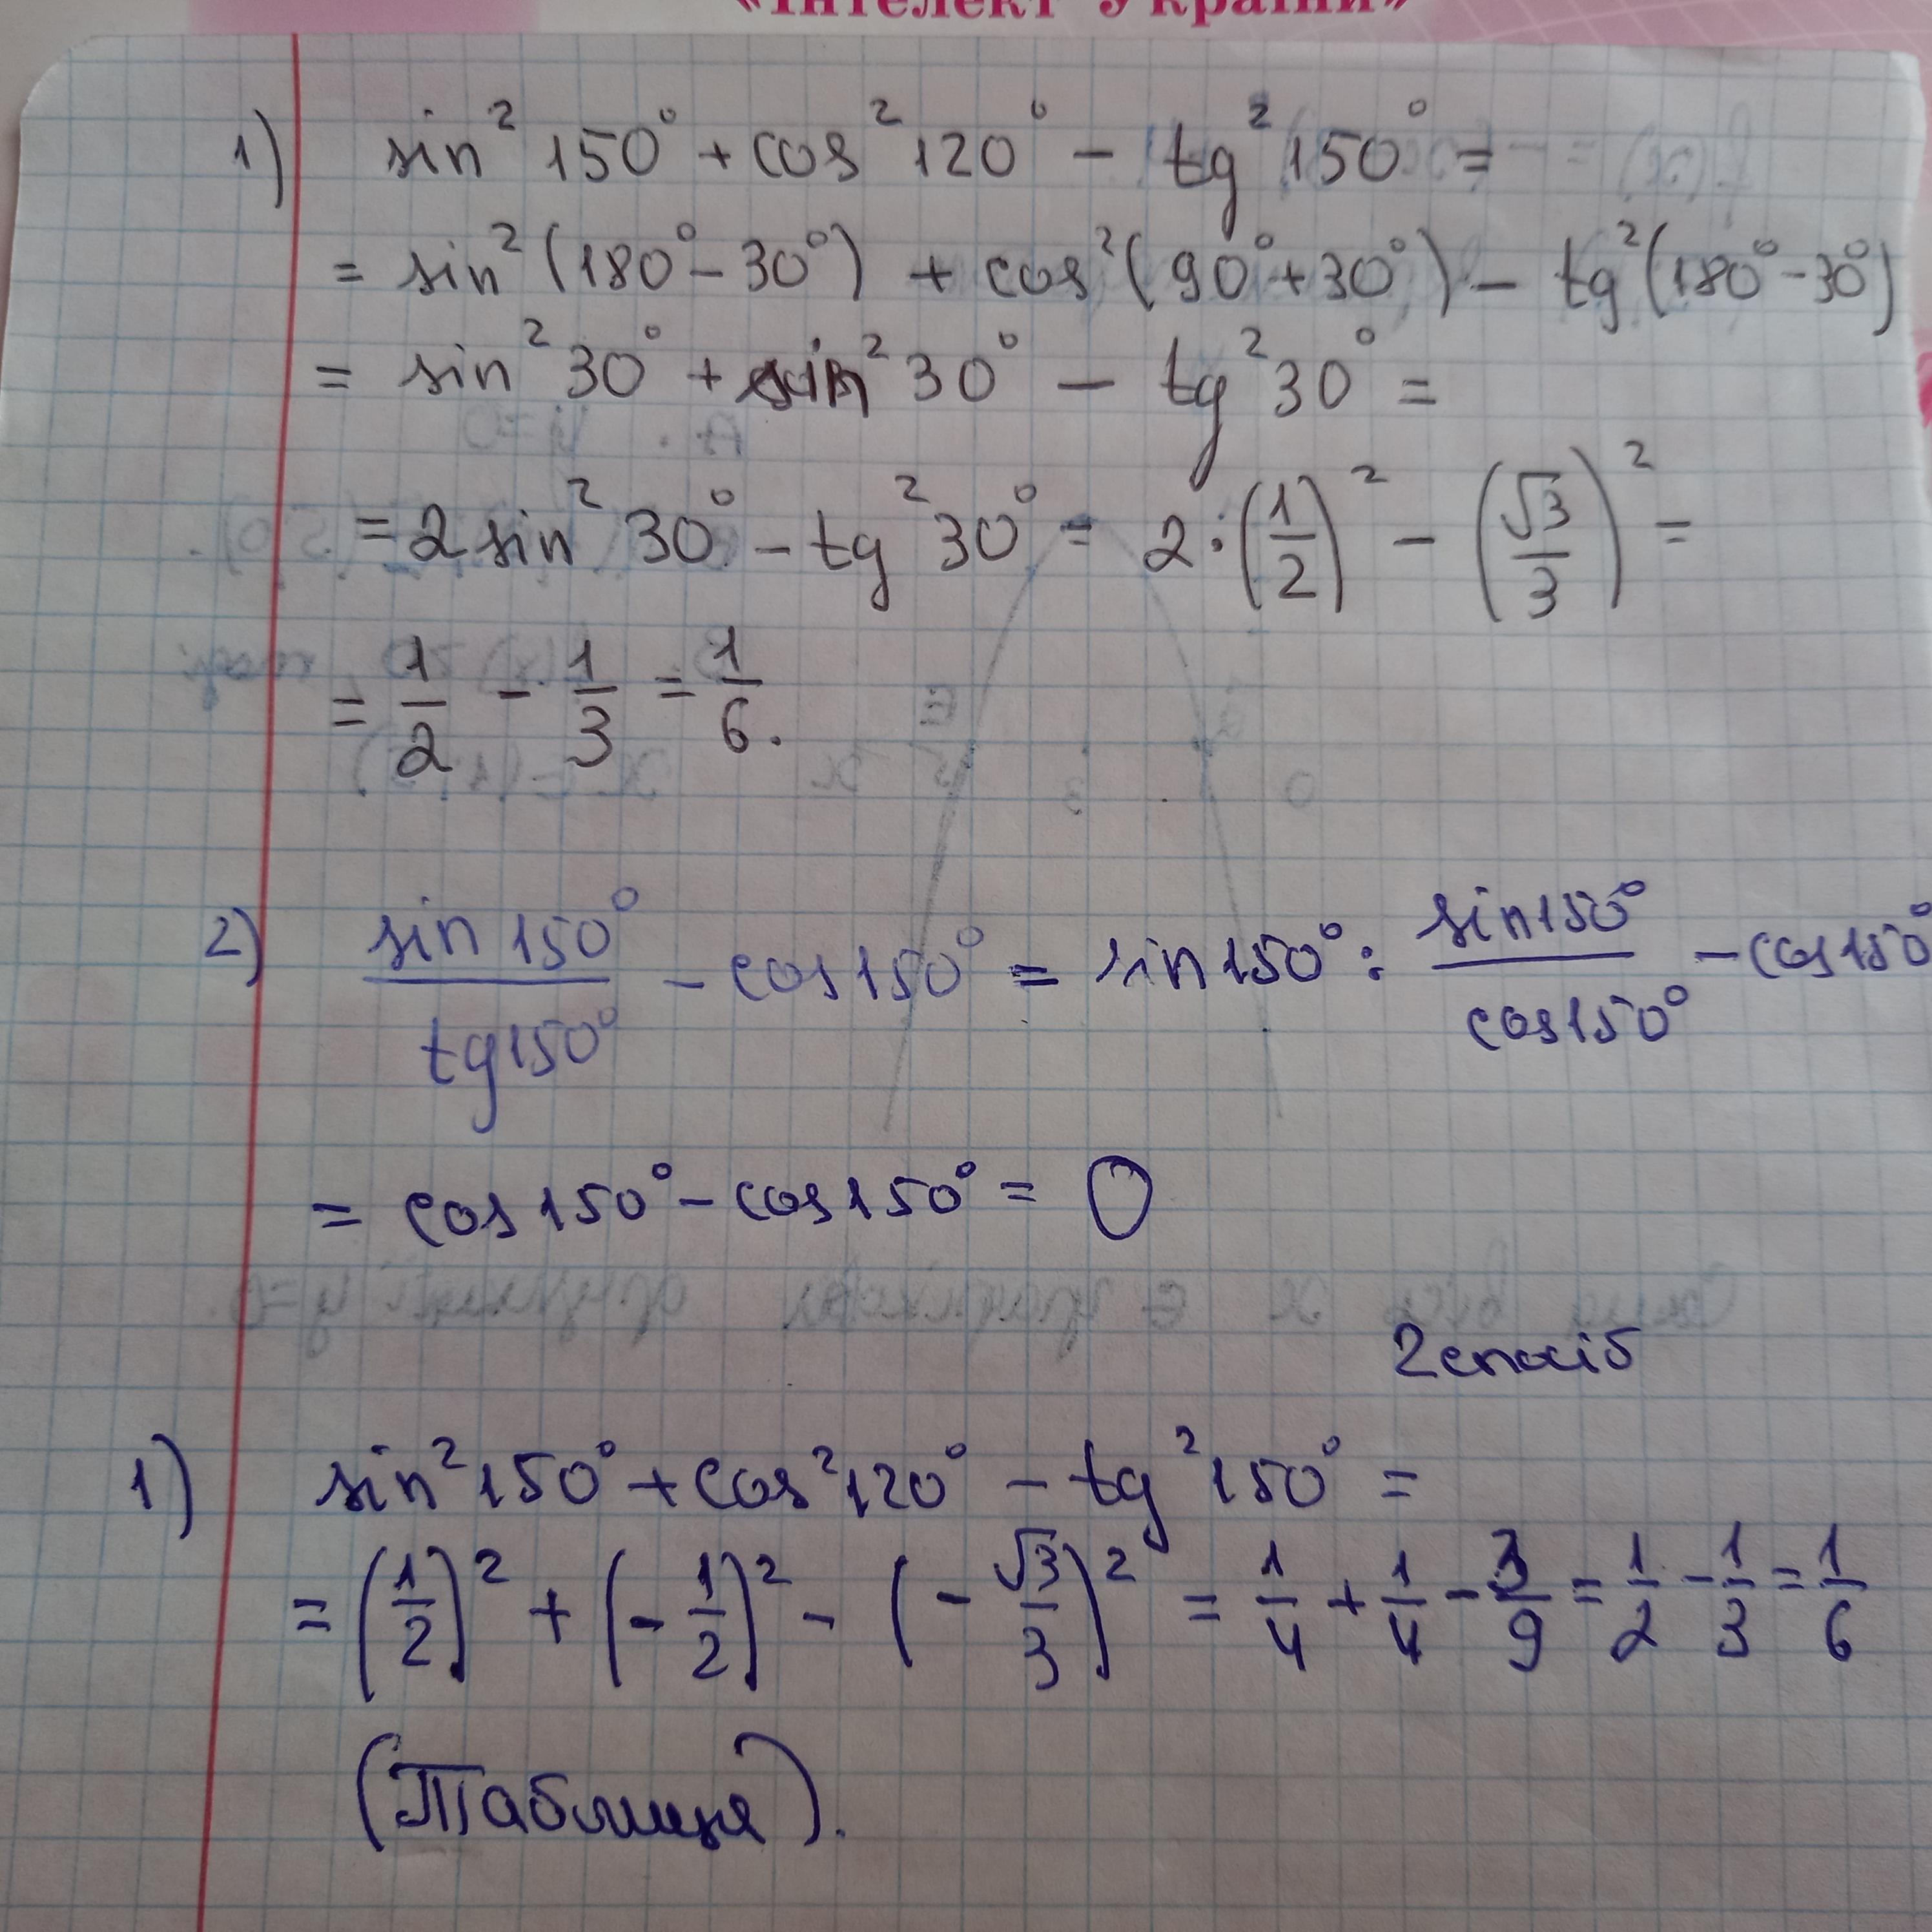 «Інтелект України»
1) sin² 150° + cos² 120° - tg² 150° =
= sin² (180° - 30°) + cos² (90° + 30°) - tg² (180° - 30°)
= sin² 30° + sin² 30° - tg² 30° =
= 2 sin² 30° - tg² 30° = 2 · (1/2)² - (√3/3)² =
= 1/2 - 1/3 = 1/6.
2) sin 150°/tg 150° - cos 150° = sin 150° : sin 150°/cos 150° - cos 150°
= cos 150° - cos 150° = 0
2 спосіб
1) sin² 150° + cos² 120° - tg² 150° =
= (1/2)² + (- 1/2)² - (- √3/3)² = 1/4 + 1/4 - 3/9 = 1/2 - 1/3 = 1/6
(Таблиця).